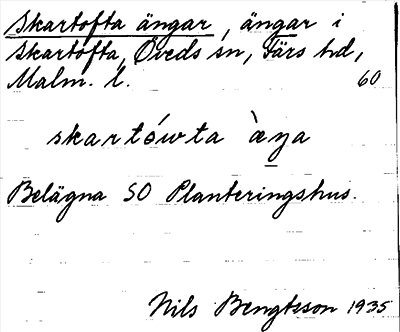 Skartofta ängar, ängar i
Skartofta, Öveds sn, Färs hd,
Malm. l. 60
skartówta àŋa
Belägna SO Planteringshus.
Nils Bengtsson 1935